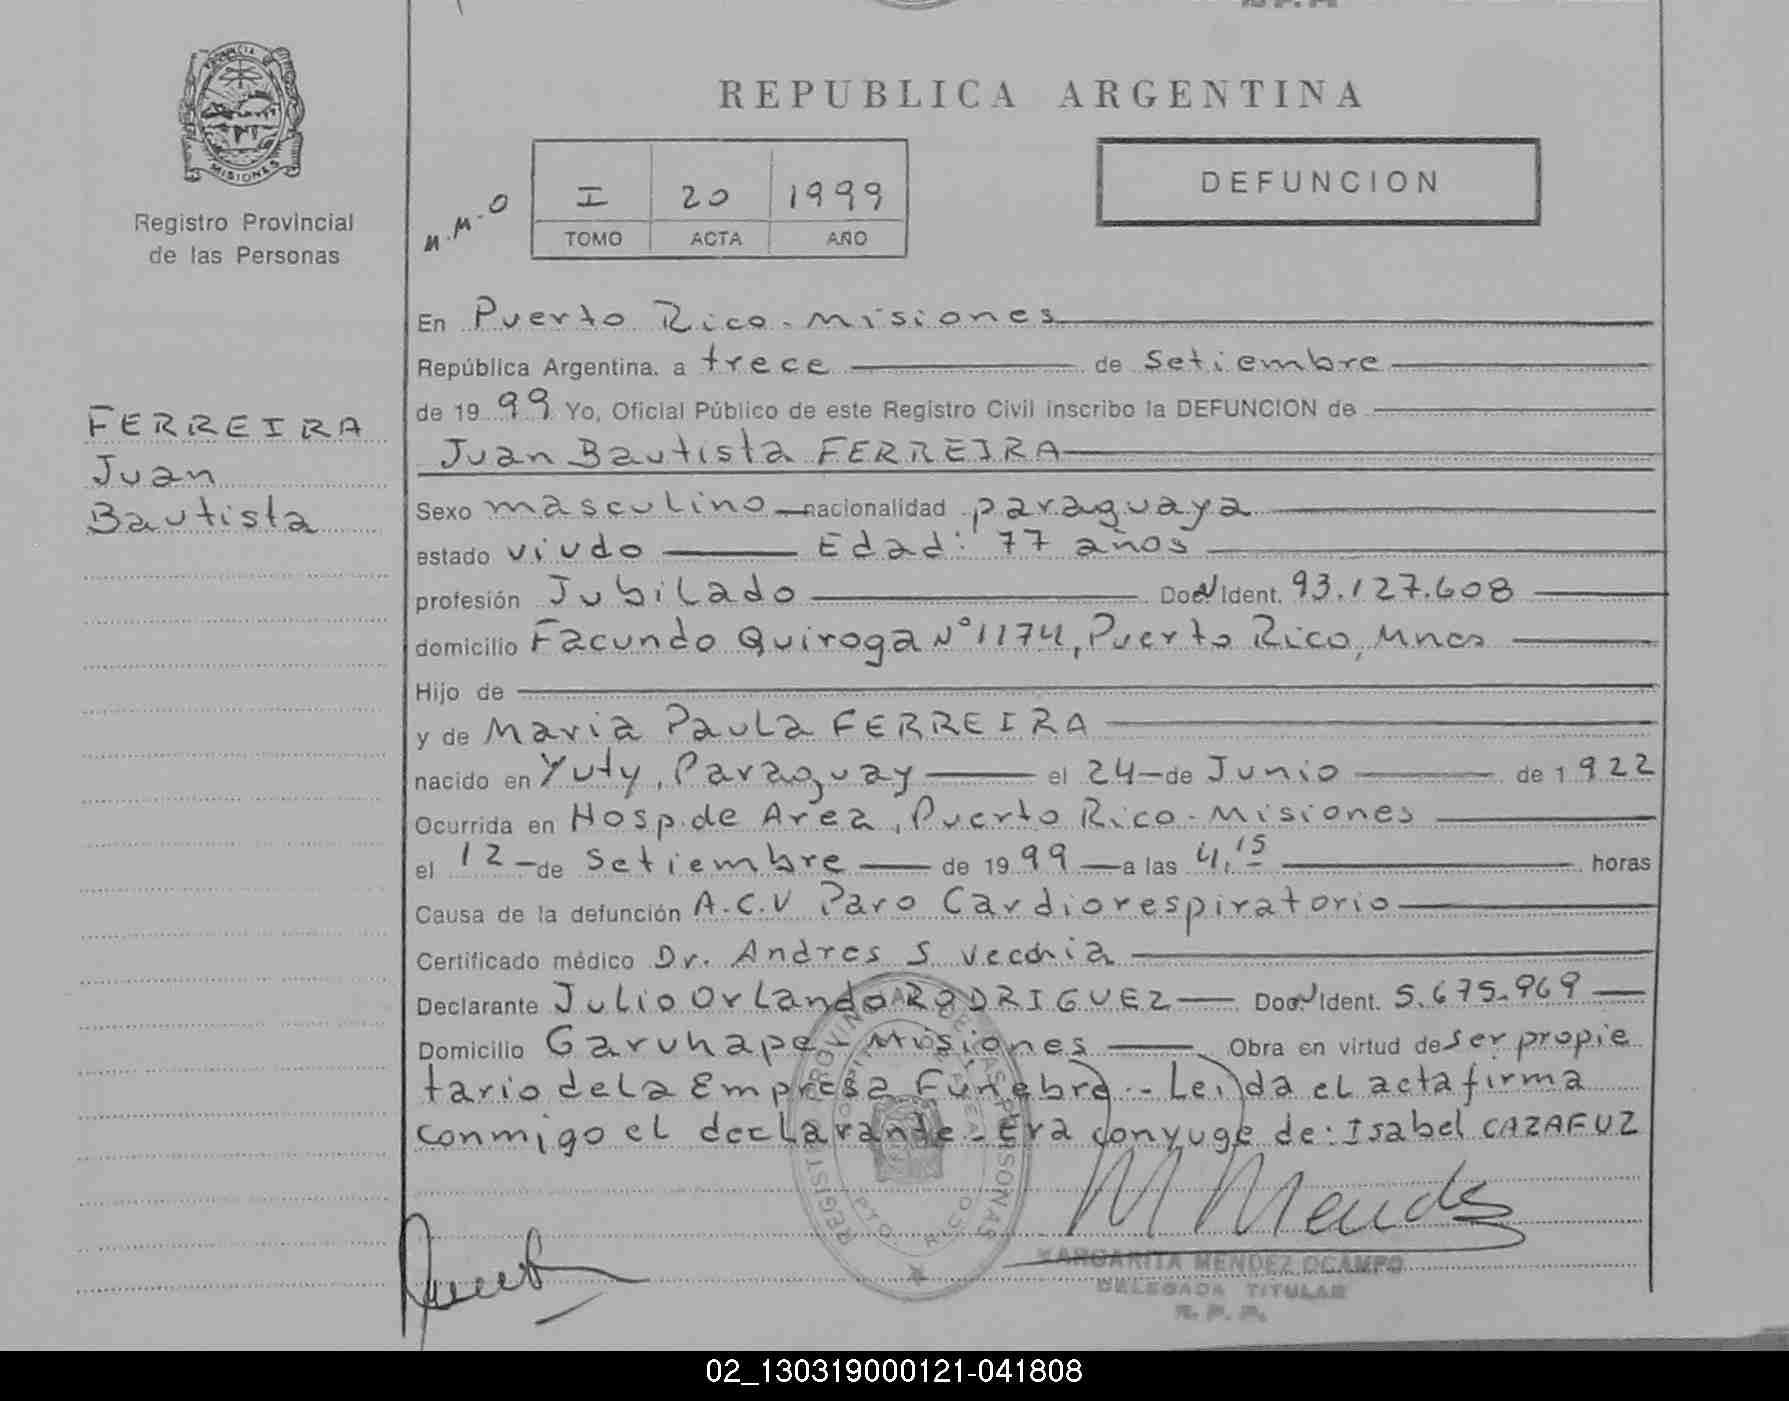 PROVINCIA
MISIONES
Registro Provincial
de las Personas
FERREIRA
Juan
Bautista
REPUBLICA ARGENTINA
M.M.O
I 20 1999
TOMO ACTA AÑO
DEFUNCION
En Puerto Rico - Misiones
República Argentina. a trece de Setiembre
de 19 99 Yo, Oficial Público de este Registro Civil inscribo la DEFUNCION de
Juan Bautista FERREIRA
Sexo masculino nacionalidad paraguaya
estado viudo Edad: 77 años
profesión Jubilado Doc N Ident. 93.127.608
domicilio Facundo Quiroga N° 1174, Puerto Rico, Mnes
Hijo de
y de Maria Paula FERREIRA
nacido en Yuty, Paraguay el 24 de Junio de 1 922
Ocurrida en Hosp. de Area, Puerto Rico - Misiones
el 12 de Setiembre de 19 99 a las 4,15 horas
Causa de la defunción A.C.V Paro Cardiorespiratorio
Certificado médico Dr. Andres S Vecchia
Declarante Julio Orlando RODRIGUEZ Doc N Ident. 5.675.969
Domicilio Garuhape - Misiones Obra en virtud de ser propie
tario de la Empresa Funebre .- Leida el acta firma
conmigo el declarante - Era conyuge de: Isabel CAZAFUZ
REGISTRO PROVINCIAL DE LAS PERSONAS
PTO RICO
M Mendez
MARGARITA MENDEZ OCAMPO
DELEGADA TITULAR
R. P. P.
02_130319000121-041808